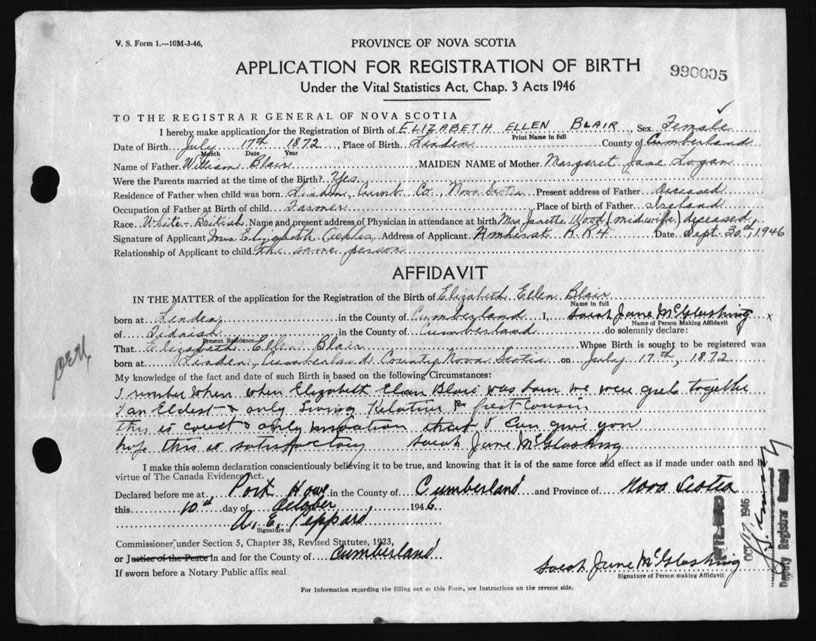 V. S. Form 1.—10M-3-46,
PROVINCE OF NOVA SCOTIA
APPLICATION FOR REGISTRATION OF BIRTH
990005
Under the Vital Statistics Act, Chap. 3 Acts 1946
TO THE REGISTRAR GENERAL OF NOVA SCOTIA
I hereby make application for the Registration of Birth of ELIZABETH ELLEN BLAIR, Sex Female
Print Name in full
Date of Birth July 17th 1872, Place of Birth Linden County of Cumberland
Month Date Year
Name of Father William Blair MAIDEN NAME of Mother Margaret Jane Logan
Were the Parents married at the time of the Birth? Yes.
Residence of Father when child was born Linden, Cumb. Co., Nova Scotia Present address of Father deceased
Occupation of Father at Birth of child Farmer Place of birth of Father Ireland
Race White - British Name and present address of Physician in attendance at birth Mrs Janette Wood (midwife) deceased
Signature of Applicant Mrs Elizabeth Address of Applicant Amherst R.R.4 Date Sept. 30th, 1946
Relationship of Applicant to child the same person
AFFIDAVIT
IN THE MATTER of the application for the Registration of the Birth of Elizabeth Ellen Blair
Name in full
born at Linden in the County of Cumberland I, Sarah Jane McGlashing x
Name of Person Making Affidavit
of Tidnish in the County of Cumberland do solemnly declare:
Present Residence
That Elizabeth Ellen Blair Whose Birth is sought to be registered was
born at Linden, Cumberland County Nova Scotia on July 17th, 1872
My knowledge of the fact and date of such Birth is based on the following Circumstances:
I when when Elizabeth Blair was born we were girls together
I an Eldest & only living Relative & first cousin
this is correct & only that I can give you
hope this is satisfactory Sarah Jane McGlashing
I make this solemn declaration conscientiously believing it to be true, and knowing that it is of the same force and effect as if made under oath and by
virtue of The Canada Evidence Act.
Declared before me at Port Howe in the County of Cumberland and Province of Nova Scotia
this 10th day of October 1946
A. E. Peppard
Signature of
Commissioner under Section 5, Chapter 38, Revised Statutes, 1923,
or Justice of the Peace in and for the County of Cumberland
If sworn before a Notary Public affix seal.
Sarah Jane McGlashing
Signature of Person making Affidavit
For Information regarding the filling out of this Form, see Instructions on the reverse side.
FILED
OCT 17 1946
Deputy Registrar General